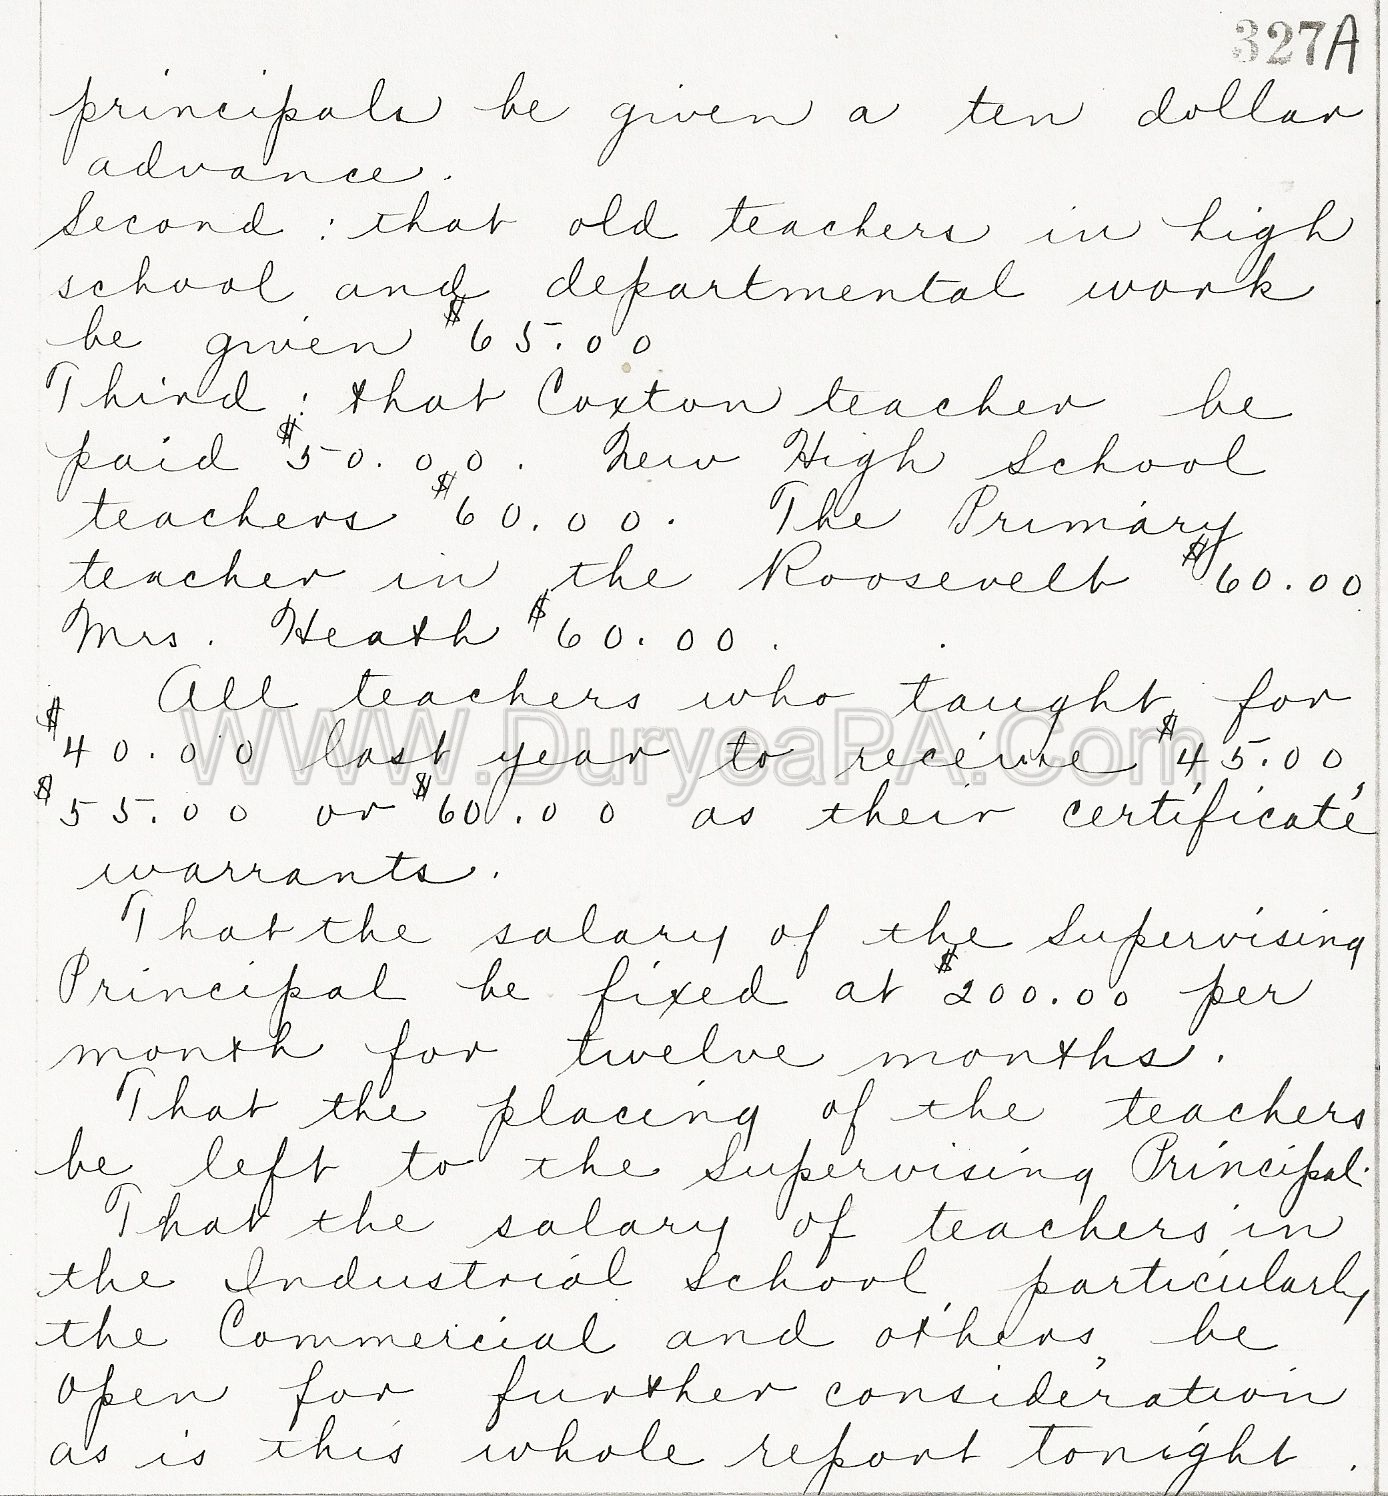 327A
principals be given a ten dollar
advance.
Second: that old teachers in high
school and departmental work
be given $65.00
Third: that Coxton teacher be
paid $50.00. New High School
teachers $60.00. The Primary
teacher in the Roosevelt $60.00
Mrs. Heath $60.00.
All teachers who taught for
$40.00 last year to receive $45.00,
WWW.DuryeaPA.Com
$55.00 or $60.00 as their certificate
warrants.
That the salary of the Supervising
Principal be fixed at $200.00 per
month for twelve months.
That the placing of the teachers
be left to the Supervising Principal.
That the salary of teachers in
the Industrial School, particularly
the Commercial and others, be
open for further consideration
as is this whole report tonight.